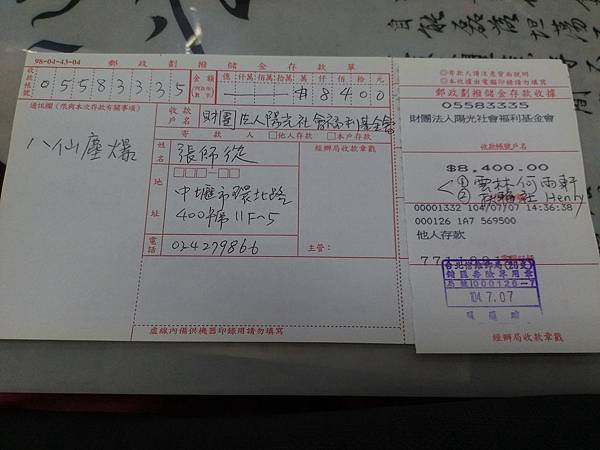 98-04-43-04
郵政劃撥儲金存款單
收款帳號
05583335
金額
億 仟萬 佰萬 拾萬 萬 仟 佰 拾 元
8400
通訊欄(限與本次存款有關事項)
八仙塵爆
收款戶名
財團法人陽光社會福利基金會
寄款人 □他人存款 □本戶存款
姓名
張師從
地址
中壢市環北路
400號11F~5
電話
經辦局收款章戳
主管:
虛線內備供機器印錄用請勿填寫
◎寄款人請注意背面說明
◎本收據由電腦印錄請勿填寫
郵政劃撥儲金存款收據
05583335
財團法人陽光社會福利基金會
收款帳號戶名
$8,400.00
① 雲林何雨軒
② Henry
00001332 104/07/07 14:36:38
000126 1A7 569500
他人存款
104.7.07
經辦局收款章戳